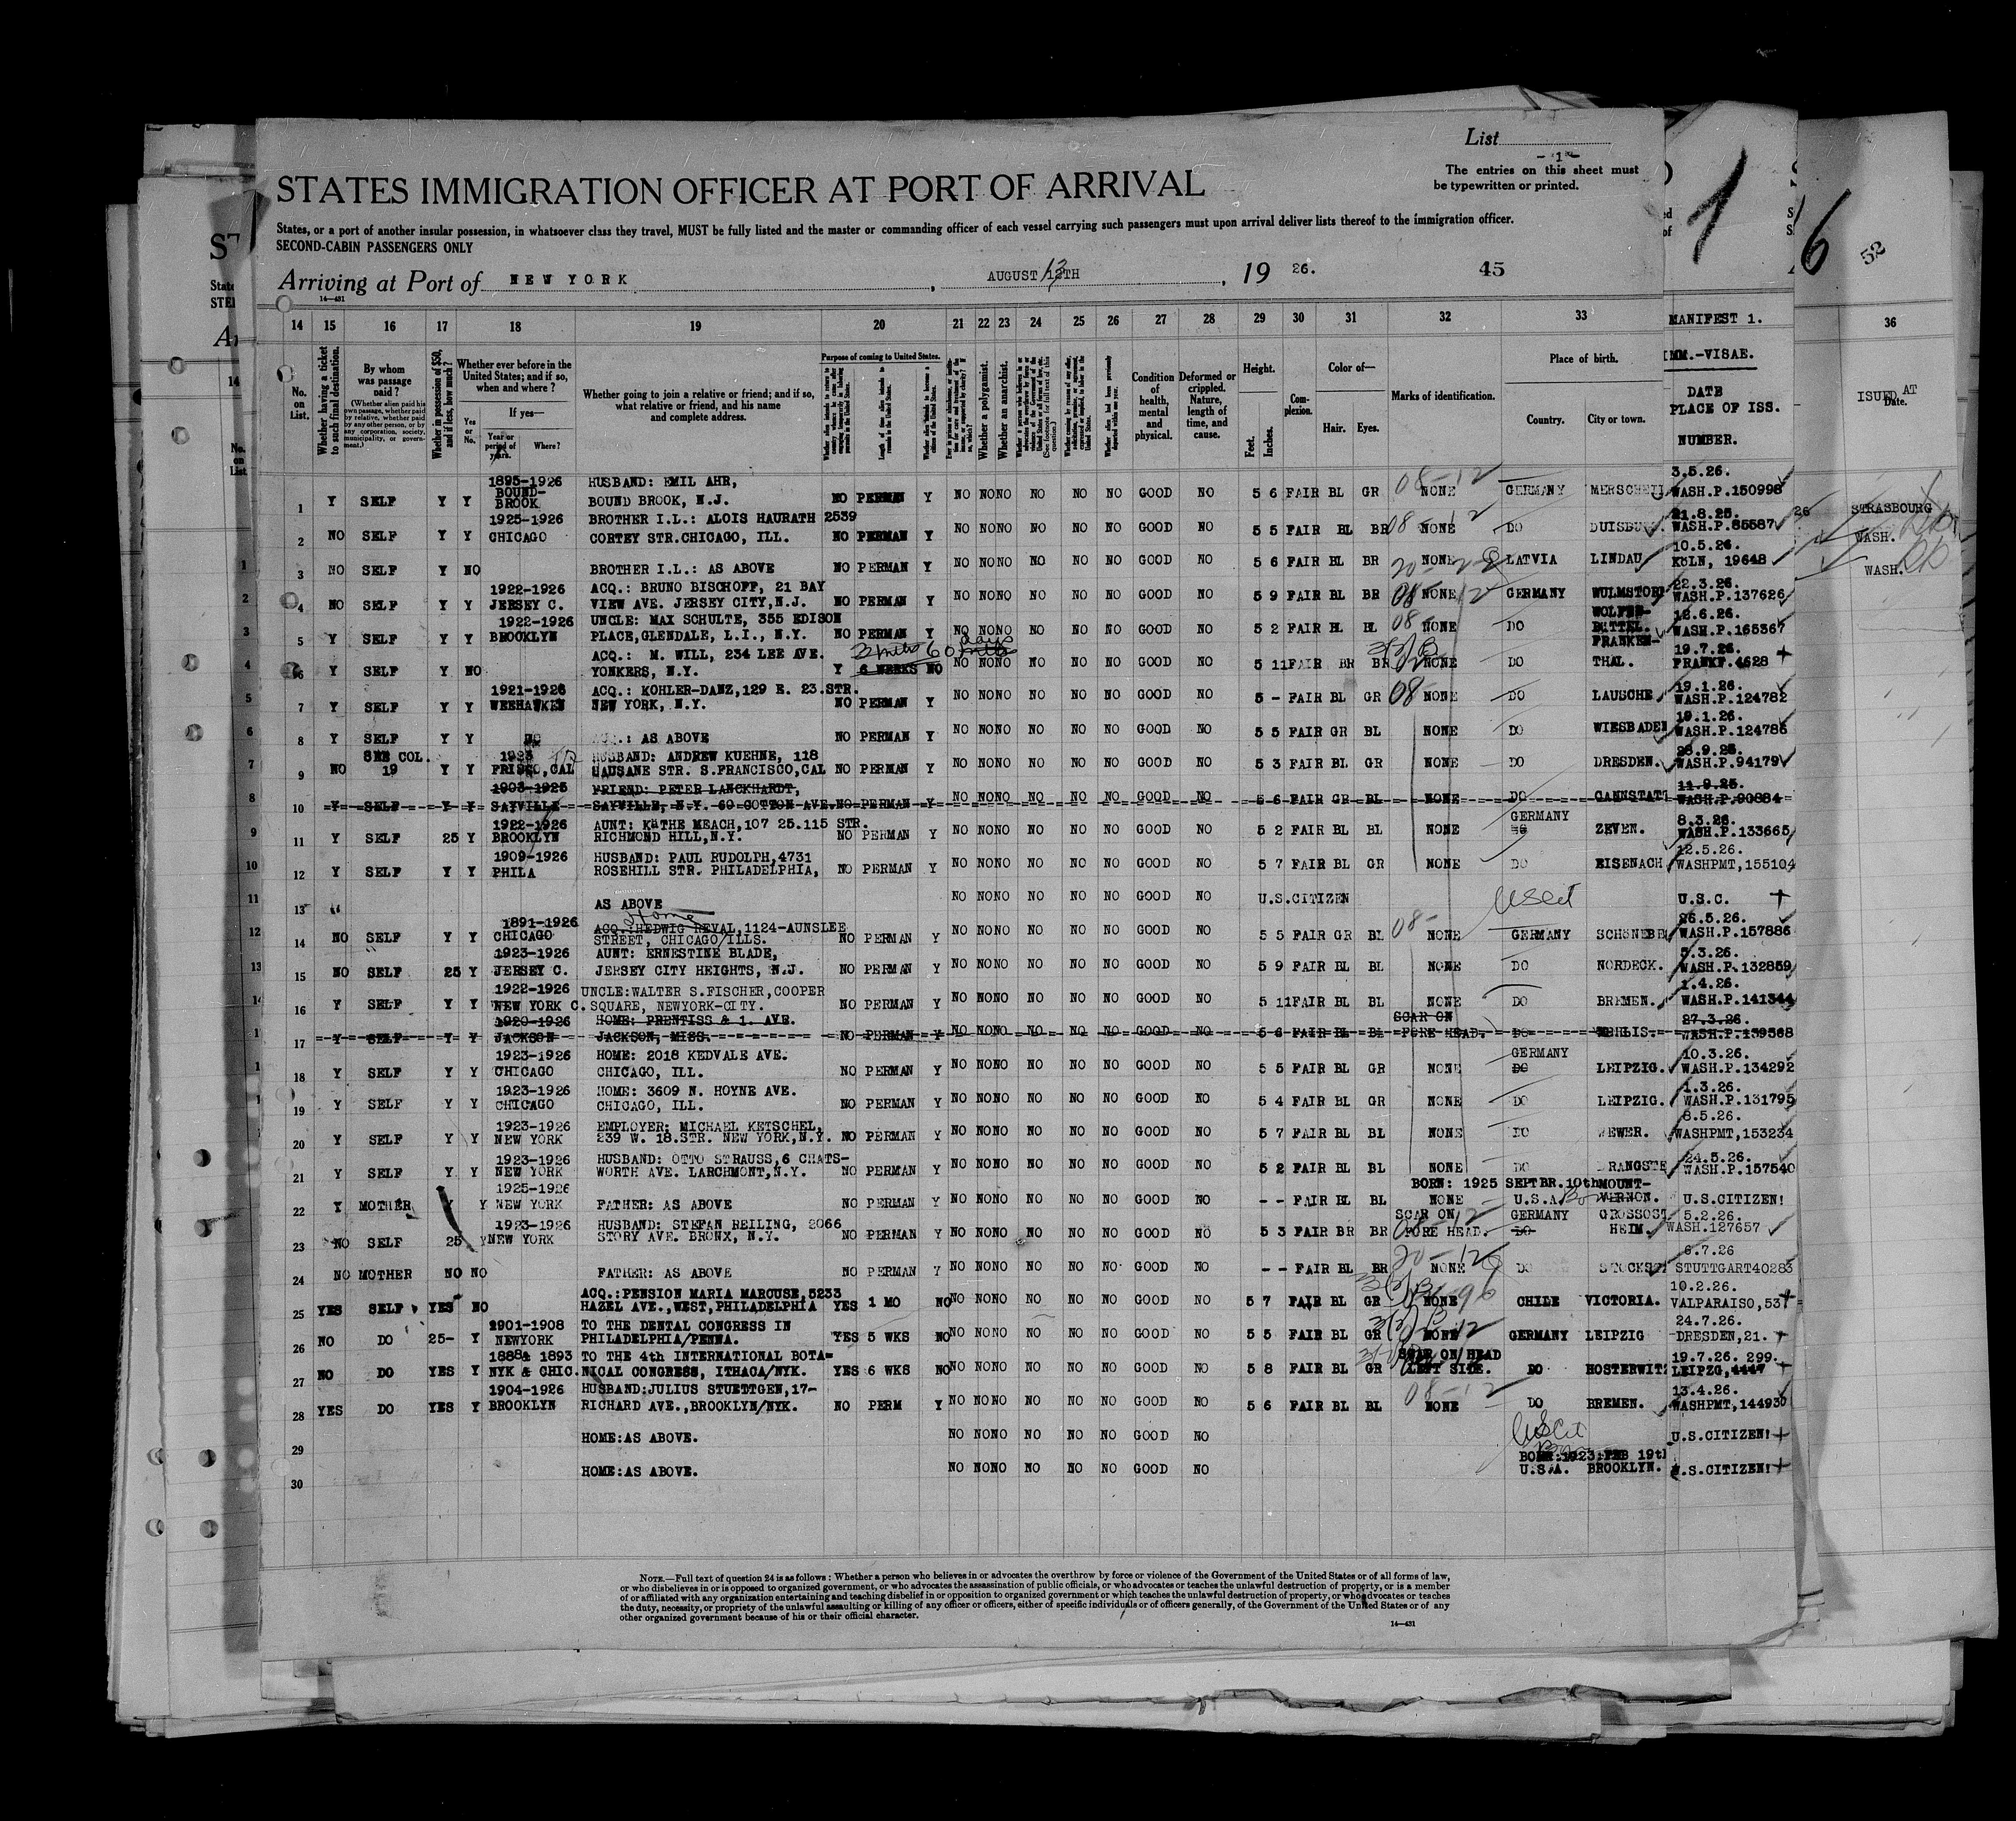 List
-1-
The entries on this sheet must
be typewritten or printed.
STATES IMMIGRATION OFFICER AT PORT OF ARRIVAL
States, or a port of another insular possession, in whatsoever class they travel, MUST be fully listed and the master or commanding officer of each vessel carrying such passengers must upon arrival deliver lists thereof to the immigration officer.
SECOND-CABIN PASSENGERS ONLY
Arriving at Port of NEW YORK, AUGUST 13TH, 1926. 45
14—431
1 6 52
14 15 16 17 18 19 20 21 22 23 24 25 26 27 28 29 30 31 32 33 MANIFEST 1. 36
No. on List.
Whether having a ticket to such final destination.
By whom was passage paid?
(Whether alien paid his own passage, whether paid by relative, whether paid by any other person, or by any corporation, society, municipality, or government.)
Whether in possession of $50, and if less, how much?
Whether ever before in the United States; and if so, when and where?
Yes or No.
If yes—
Year or period of years.
Where?
Whether going to join a relative or friend; and if so, what relative or friend, and his name and complete address.
Purpose of coming to United States.
Whether a polygamist.
Whether an anarchist.
Condition of health, mental and physical.
Deformed or crippled. Nature, length of time, and cause.
Height.
Feet. Inches.
Complexion.
Color of—
Hair. Eyes.
Marks of identification.
Place of birth.
Country. City or town.
IMM.-VISAE.
DATE
PLACE OF ISS.
NUMBER.
ISUED AT
Date.
1895-1926 HUSBAND: EMIL AHR, 3.5.26.
1 Y SELF Y Y BOUND-BROOK BOUND BROOK, N.J. NO PERMAN Y NO NO NO NO NO NO GOOD NO 5 6 FAIR BL GR 08-12 NONE GERMANY WASH.P.150998
1925-1926 BROTHER I.L.: ALOIS HAURATH 2539 21.8.25.
2 NO SELF Y Y CHICAGO CORTEY STR.CHICAGO, ILL. NO PERMAN Y NO NO NO NO NO NO GOOD NO 5 5 FAIR BL BR 08-12 NONE DO WASH.P.85587
10.5.26.
3 NO SELF Y NO BROTHER I.L.: AS ABOVE NO PERMAN Y NO NO NO NO NO NO GOOD NO 5 6 FAIR BL BR NONE LATVIA LINDAU KöLN, 19648
1922-1926 ACQ.: BRUNO BISCHOFF, 21 BAY 22.3.26.
4 NO SELF Y Y JERSEY C. VIEW AVE. JERSEY CITY,N.J. NO PERMAN Y NO NO NO NO NO NO GOOD NO 5 9 FAIR BL BR NONE GERMANY WULMSTORF WASH.P.137626
1922-1926 UNCLE: MAX SCHULTE, 355 EDISON WOLFEN- 12.6.26.
5 Y SELF Y Y BROOKLYN PLACE,GLENDALE, L.I., N.Y. NO PERMAN Y NO NO NO NO NO NO GOOD NO 5 2 FAIR BL BL 08- NONE DO BÜTTEL. WASH.P.165367
ACQ.: M. WILL, 234 LEE AVE. 60 days FRANKEN- 19.7.26.
6 Y SELF Y NO YONKERS, N.Y. Y 6 WEEKS NO NO NO NO NO NO NO GOOD NO 5 11 FAIR BR BR NONE DO THAL. FRANKF.4628
1921-1926 ACQ.: KOHLER-DANZ,129 E. 23.STR. 19.1.26.
7 Y SELF Y Y WEEHAWKEN NEW YORK, N.Y. NO PERMAN Y NO NO NO NO NO NO GOOD NO 5 - FAIR BL GR 08- NONE DO LAUSCHE WASH.P.124782
19.1.26.
8 Y SELF Y Y DO : AS ABOVE NO PERMAN Y NO NO NO NO NO NO GOOD NO 5 5 FAIR GR BL NONE DO WIESBADEN WASH.P.124786
SEE COL. 1923 HUSBAND: ANDREW KUEHNE, 118 28.9.25.
9 NO 19 Y Y FRISCO,CAL LAUSANE STR. S.FRANCISCO,CAL NO PERMAN Y NO NO NO NO NO NO GOOD NO 5 3 FAIR BL GR NONE DO DRESDEN. WASH.P.94179
1903-1925 FRIEND: PETER LANCKHARDT, 11.9.25.
10 Y SELF Y Y SAYVILLE SAYVILLE, N.Y. 69 COTTON AVE. NO PERMAN Y NO NO NO NO NO NO GOOD NO 5 6 FAIR GR BL NONE DO CANNSTATT WASH.P.90884
1922-1926 AUNT: KäTHE MEACH,107 25.115 STR. GERMANY 8.3.26.
11 Y SELF 25 Y BROOKLYN RICHMOND HILL,N.Y. NO PERMAN Y NO NO NO NO NO NO GOOD NO 5 2 FAIR BL BL NONE ZEVEN. WASH.P.133665
1909-1926 HUSBAND: PAUL RUDOLPH,4731 12.5.26.
12 Y SELF Y Y PHILA ROSEHILL STR. PHILADELPHIA, NO PERMAN Y NO NO NO NO NO NO GOOD NO 5 7 FAIR BL GR NONE DO EISENACH WASHPMT,155104
13 " AS ABOVE NO NO NO NO NO NO GOOD NO U.S.CITIZEN USCit U.S.C.
1891-1926 Home ACQ.:HEDWIG REVAL,1124-AUNSLEE 26.5.26.
14 NO SELF Y Y CHICAGO STREET, CHICAGO/ILLS. NO PERMAN Y NO NO NO NO NO NO GOOD NO 5 5 FAIR GR BL 08- NONE GERMANY WASH.P.157886
1923-1926 AUNT: ERNESTINE BLADE, 5.3.26.
15 NO SELF 25 Y JERSEY C. JERSEY CITY HEIGHTS, N.J. NO PERMAN Y NO NO NO NO NO NO GOOD NO 5 9 FAIR BL BL NONE DO NORDECK. WASH.P.132859
1922-1926 UNCLE:WALTER S.FISCHER,COOPER 1.4.26.
16 Y SELF Y Y NEW YORK C. SQUARE, NEWYORK-CITY. NO PERMAN Y NO NO NO NO NO NO GOOD NO 5 11 FAIR BL BL NONE DO BREMEN. WASH.P.141344
1920-1926 HOME: PRENTISS & 1. AVE. SCAR ON 27.3.26.
17 Y SELF Y Y JACKSON JACKSON, MISS. NO PERMAN Y NO NO NO NO NO NO GOOD NO 5 6 FAIR BL BL FORE HEAD. DO WASH.P.139568
1923-1926 HOME: 2018 KEDVALE AVE. GERMANY 10.3.26.
18 Y SELF Y Y CHICAGO CHICAGO, ILL. NO PERMAN Y NO NO NO NO NO NO GOOD NO 5 5 FAIR BL GR NONE DO LEIPZIG. WASH.P.134292
1923-1926 HOME: 3609 N. HOYNE AVE. 1.3.26.
19 Y SELF Y Y CHICAGO CHICAGO, ILL. NO PERMAN Y NO NO NO NO NO NO GOOD NO 5 4 FAIR BL GR NONE DO LEIPZIG. WASH.P.131795
1923-1926 EMPLOYER: MICHAEL KETSCHEL, 8.5.26.
20 Y SELF Y Y NEW YORK 239 W. 18.STR. NEW YORK,N.Y. NO PERMAN Y NO NO NO NO NO NO GOOD NO 5 7 FAIR BL BL NONE DO WASHPMT,153234
1923-1926 HUSBAND: OTTO STRAUSS,6 CHATS- 24.5.26.
21 Y SELF Y Y NEW YORK WORTH AVE. LARCHMONT,N.Y. NO PERMAN Y NO NO NO NO NO NO GOOD NO 5 2 FAIR BL BL NONE DO WASH.P.157540
1925-1926 BORN: 1925 SEPTBR.10th MOUNT-
22 Y MOTHER Y Y NEW YORK FATHER: AS ABOVE NO PERMAN Y NO NO NO NO NO NO GOOD NO - - FAIR BL BL NONE U.S.A. VERNON. U.S.CITIZEN!
1923-1926 HUSBAND: STEFAN REILING, 2066 SCAR ON GERMANY GROSSOST 5.2.26.
23 NO SELF 25 Y NEW YORK STORY AVE. BRONX, N.Y. NO PERMAN Y NO NO NO NO NO NO GOOD NO 5 3 FAIR BR BR FORE HEAD. DO HEIM. WASH.127657
6.7.26
24 NO MOTHER NO NO FATHER: AS ABOVE NO PERMAN Y NO NO NO NO NO NO GOOD NO - - FAIR BL BR NONE DO STUTTGART40283
ACQ.:PENSION MARIA MARCUSE,5233 10.2.26.
25 YES SELF YES NO HAZEL AVE.,WEST,PHILADELPHIA YES 1 MO NO NO NO NO NO NO NO GOOD NO 5 7 FAIR BL GR NONE CHILE VICTORIA. VALPARAISO,537
1901-1908 TO THE DENTAL CONGRESS IN 24.7.26.
26 NO DO 25- Y NEWYORK PHILADELPHIA/PENNA. YES 5 WKS NO NO NO NO NO NO NO GOOD NO 5 5 FAIR BL GR NONE GERMANY LEIPZIG DRESDEN,21.
1888& 1893 TO THE 4th INTERNATIONAL BOTA= SCAR ON HEAD 19.7.26. 299.
27 NO DO YES Y NYK & CHIC. NICAL CONGRESS, ITHACA/NYK. YES 6 WKS NO NO NO NO NO NO NO GOOD NO 5 8 FAIR BL GR LEFT SITE. DO HOSTERWITZ LEIPZG,4447
1904-1926 HUSBAND:JULIUS STUETTGEN,17- 08-12 13.4.26.
28 YES DO YES Y BROOKLYN RICHARD AVE.,BROOKLYN/NYK. NO PERM Y NO NO NO NO NO NO GOOD NO 5 6 FAIR BL BL NONE DO BREMEN. WASHPMT,144930
29 HOME:AS ABOVE. NO NO NO NO NO NO GOOD NO USCit U.S.CITIZEN!
BORN:1923:FEB 19th
30 HOME:AS ABOVE. NO NO NO NO NO NO GOOD NO U.S.A. BROOKLYN. U.S.CITIZEN!
26 STRASBOURG
WASH.
WASH.
NOTE.—Full text of question 24 is as follows: Whether a person who believes in or advocates the overthrow by force or violence of the Government of the United States or of all forms of law,
or who disbelieves in or is opposed to organized government, or who advocates the assassination of public officials, or who advocates or teaches the unlawful destruction of property, or is a member
of or affiliated with any organization entertaining and teaching disbelief in or opposition to organized government or which teaches the unlawful destruction of property, or who advocates or teaches
the duty, necessity, or propriety of the unlawful assaulting or killing of any officer or officers, either of specific individuals or of officers generally, of the Government of the United States or of any
other organized government because of his or their official character.
14—431